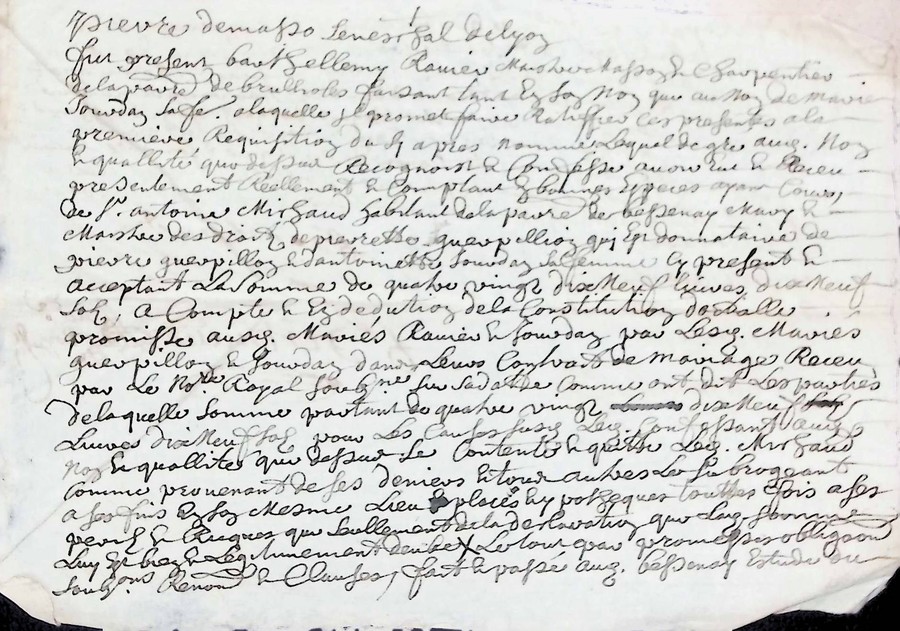 pierre demasso seneschal de lyon
fut present barthellemy Ravier Marchand Masson & Charpentier
de la parre de brullioles faisant tant en son Nom que au Nom de Marie
Jourdan sa fe. a laquelle il promet faire Rattiffier ces presentes a la
premiere Requisition du cy apres nommé Lequel de gre auq. Nom
& quallite que dessus Recognoist & Confesse avoir Eu & Receu
presentement Reellement & Comptant En bonnes Especes ayant Cours,
de Sr. antoine Michaud habitant de la parre de bessenay Mary &
Maistre des droits de pierrette guerpillion qui Est donnataire de
pierre guerpillon & dantoinette Jourdan sa femme Cy present &
acceptant La somme de quatre vingt dix Neuf livres dix Neuf
sols; A Compte & En deduction de la Constitution dotalle
promisse ausd. Mariés Ravier & Jourdan par Lesd. Mariés
guerpillon & Jourdan dans Leurs Contrat de Mariage Receu
par Le Nre. Royal soubzne. sur sa datte Comme ont dit Les parties
de laquelle somme partant de quatre vingt dix Neuf
Livres dix Neuf sols pour Les Causes susd. Led. Confessant auq.
Nom & quallite que dessus se Contente & quitte Led. Michaud
Comme provenant de ses deniers & tous autres Le subrogeant
a ses fins En son Mesme Lieu & place & hypotheques touttes fois a ses
perils & Risques que seullement de la declaration que Lad. somme
Luy Est bien & Legitimement deube X Le tout par promesses obligaon
soubzons Renonon & Clauses, fait & passé aud. bessenay Estude du